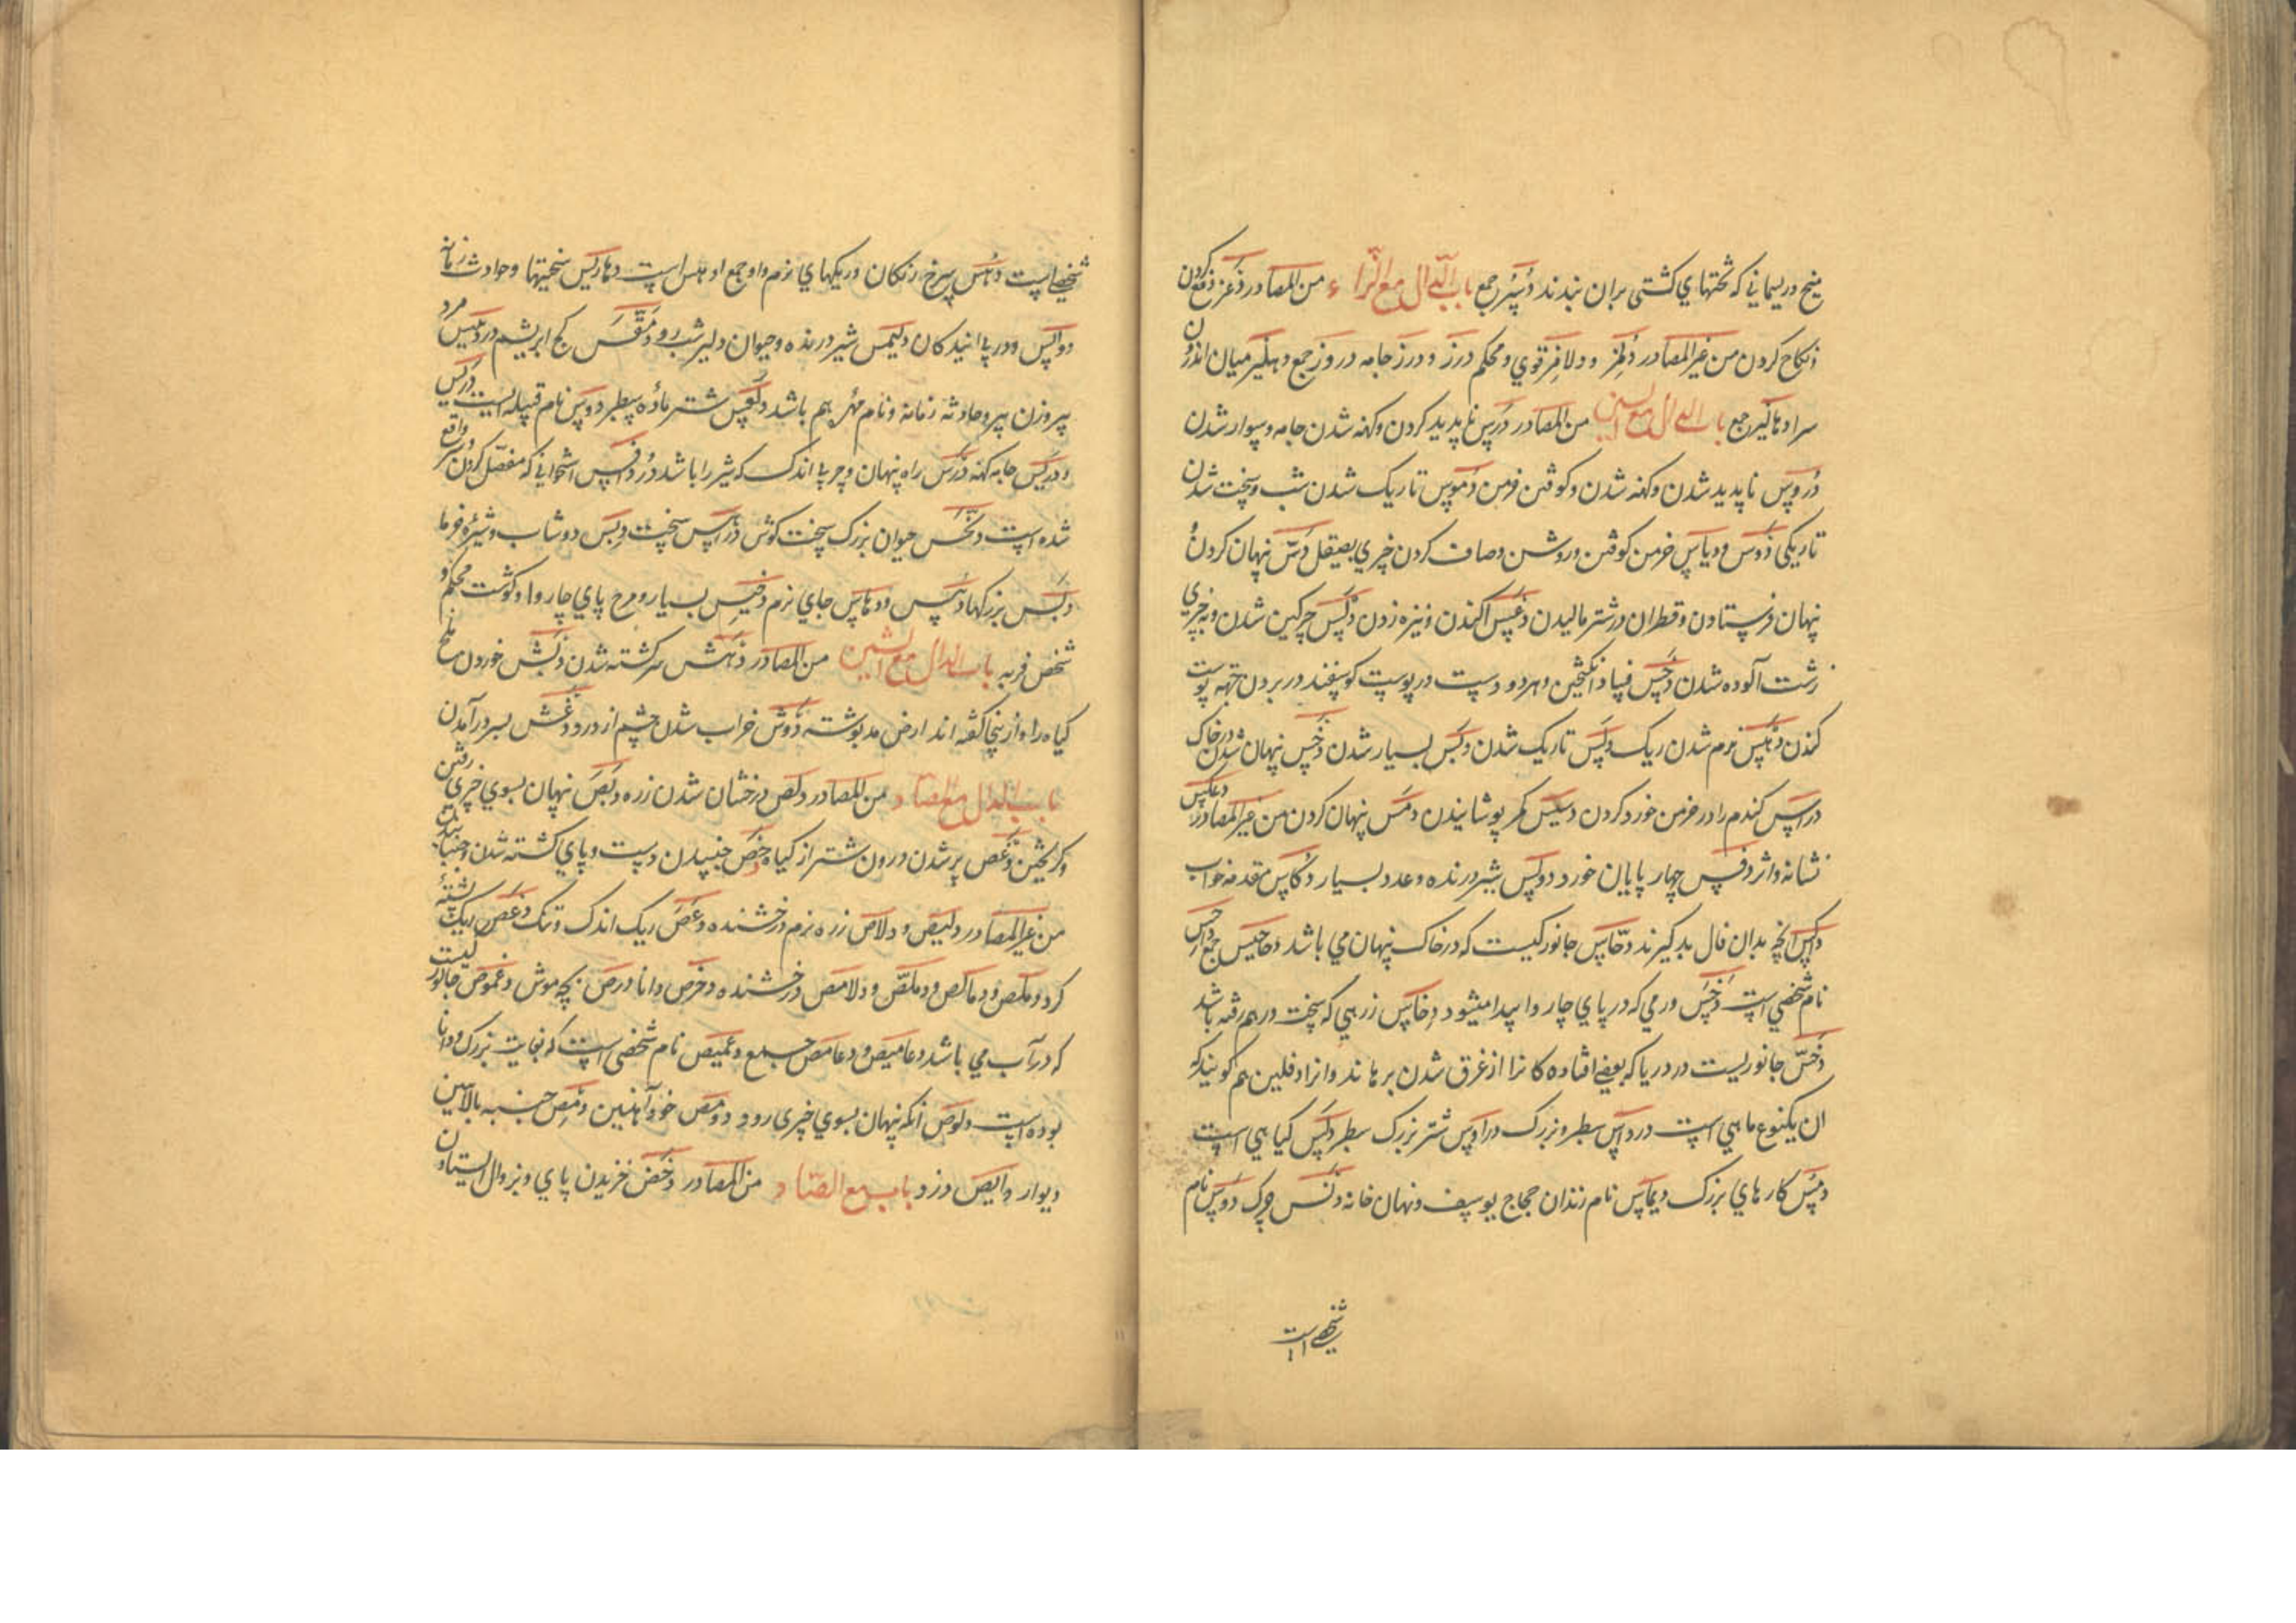 میخ و ریسمانی که تختهای کشتی بران بندند دُسُر جمع باب الدال مع الزاء من المصادر دَعز دفع کردن
و نکاح کردن من غیر المصادر دُلَمِز و دلامِز قوی و محکم درز و درز جامه دروز جمع دهلیز میان اندرون
سرا دهالیز جمع باب الدال مع السین من المصادر دَرس ناپدید کردن و کهنه شدن جامه و سوار شدن
دُروس ناپدید شدن و کهنه شدن و کوفتن خرمن دُموس تاریک شدن شب و سخت شدن
تاریکی دَوس و دیاس خرمن کوفتن و روشن و صاف کردن چیزی بصیقل دسّ پنهان کردن و
پنهان فرستادن و قطران در شتر مالیدن دَعس آکندن و نیزه زدن دنس چرکین شدن و به چیزی
زشت آلوده شدن دَحس فساد انگیختن و هر دو دست در پوست گوسفند در بردن بجهة پوست
کندن دَهس نرم شدن ریک دلس تاریک شدن دبس بسیار شدن دَخس پنهان شدن در خاک
دراس کندم را در خرمن خورد کردن تدلیس مکر پوشانیدن دمس پنهان کردن من غیر المصادر دعکس
نشانه و اثر دفس چهار پایان خورد دوکس شیر درنده و عدد بسیار دُکاس مقدمه خواب
داکس آنچه بدان فال بد گیرند دحّاس جانورکیست که در خاک پنهان می باشد دحاحیس جمع داحس
نام شخصی است دَخَس ورمی که در پای چاروا پیدا میشود دِخاس زرهی که سخت درهم رفته باشد
دُخَسّ جانوریست در دریا که بعضی افتاده کانرا از غرق شدن برهاند و انرا دلفین هم گویند که
ان یکنوع ماهی است درداس سطبر و بزرک دراوس شتر بزرک سطبر دَلَس کیاهی است
دُمس کارهای بزرک دیماس نام زندان حجاج یوسف و نهان خانه دنس چرک دَوس نام
شخصی است
شخصی است دُهس سرخ رنکان و ریکهای نرم و او جمع ادهس است دهاریس سختیها و حوادث زمانه
دواس و در پی آیندکان دلهمس شیر درنده و جوان دلیر شب رو دِمَقس کج ابریشم دردبیس مرد
پیر و زن پیر و حادثه زمانه و نام مهر هم باشد دلعس شتر ماده سطبر دوس نام قبیله ایست درس
و دریس جامه کهنه دَرس راه پنهان و جرب اندک که شتر را باشد دُرداقس استخوانی که مفصل کردن و سر واقع
شده است دخنس حیوان بزرک سخت کوش دراس سخت دِبس دوشاب و شیرۀ خرما
دُبس بزرکها دَهس و دهاس جای نرم دخیس بسیار و مرخ پای چاروا و کوشت محکم و
شخص فربه باب الدال مع الشین من المصادر دَهَش سرکشته شدن دَبش خوردن ملخ
کیاه را و از ینجا گفته اند ارض مدبوشة دَوش خراب شدن چشم از درد دغش بسر درآمدن
باب الدال مع الصاد من المصادر دلص درخشان شدن زره دَبَص نهان بسوی چیزی رفتن
و کریختن دَعَص پر شدن درون شتر از کیاه دحص جنبیدن دست و پای کشته شدن و جنبانیدن
من غیر المصادر دلیص و دلاص زره نرم درخشنده دعص ریک اندک و تنک دِعَص ریک پشته
کرد دملص و دماص و دملّص و دلامص درخشنده دخرص دانا درص بچه موش دعموص جانورکیست
که در آب می باشد دعامیص و دعامص جمع دعمیص نام شخصی است که بغایت بزرک و دانا
بوده است دلوص آنکه نهان بسوی چیزی رود دومص خود آهنین دِمص چینه بالایین
دیوار دایص دزد باب مع الضاد من المصادر دَحَض لغزیدن پای و بزوال ایستادن